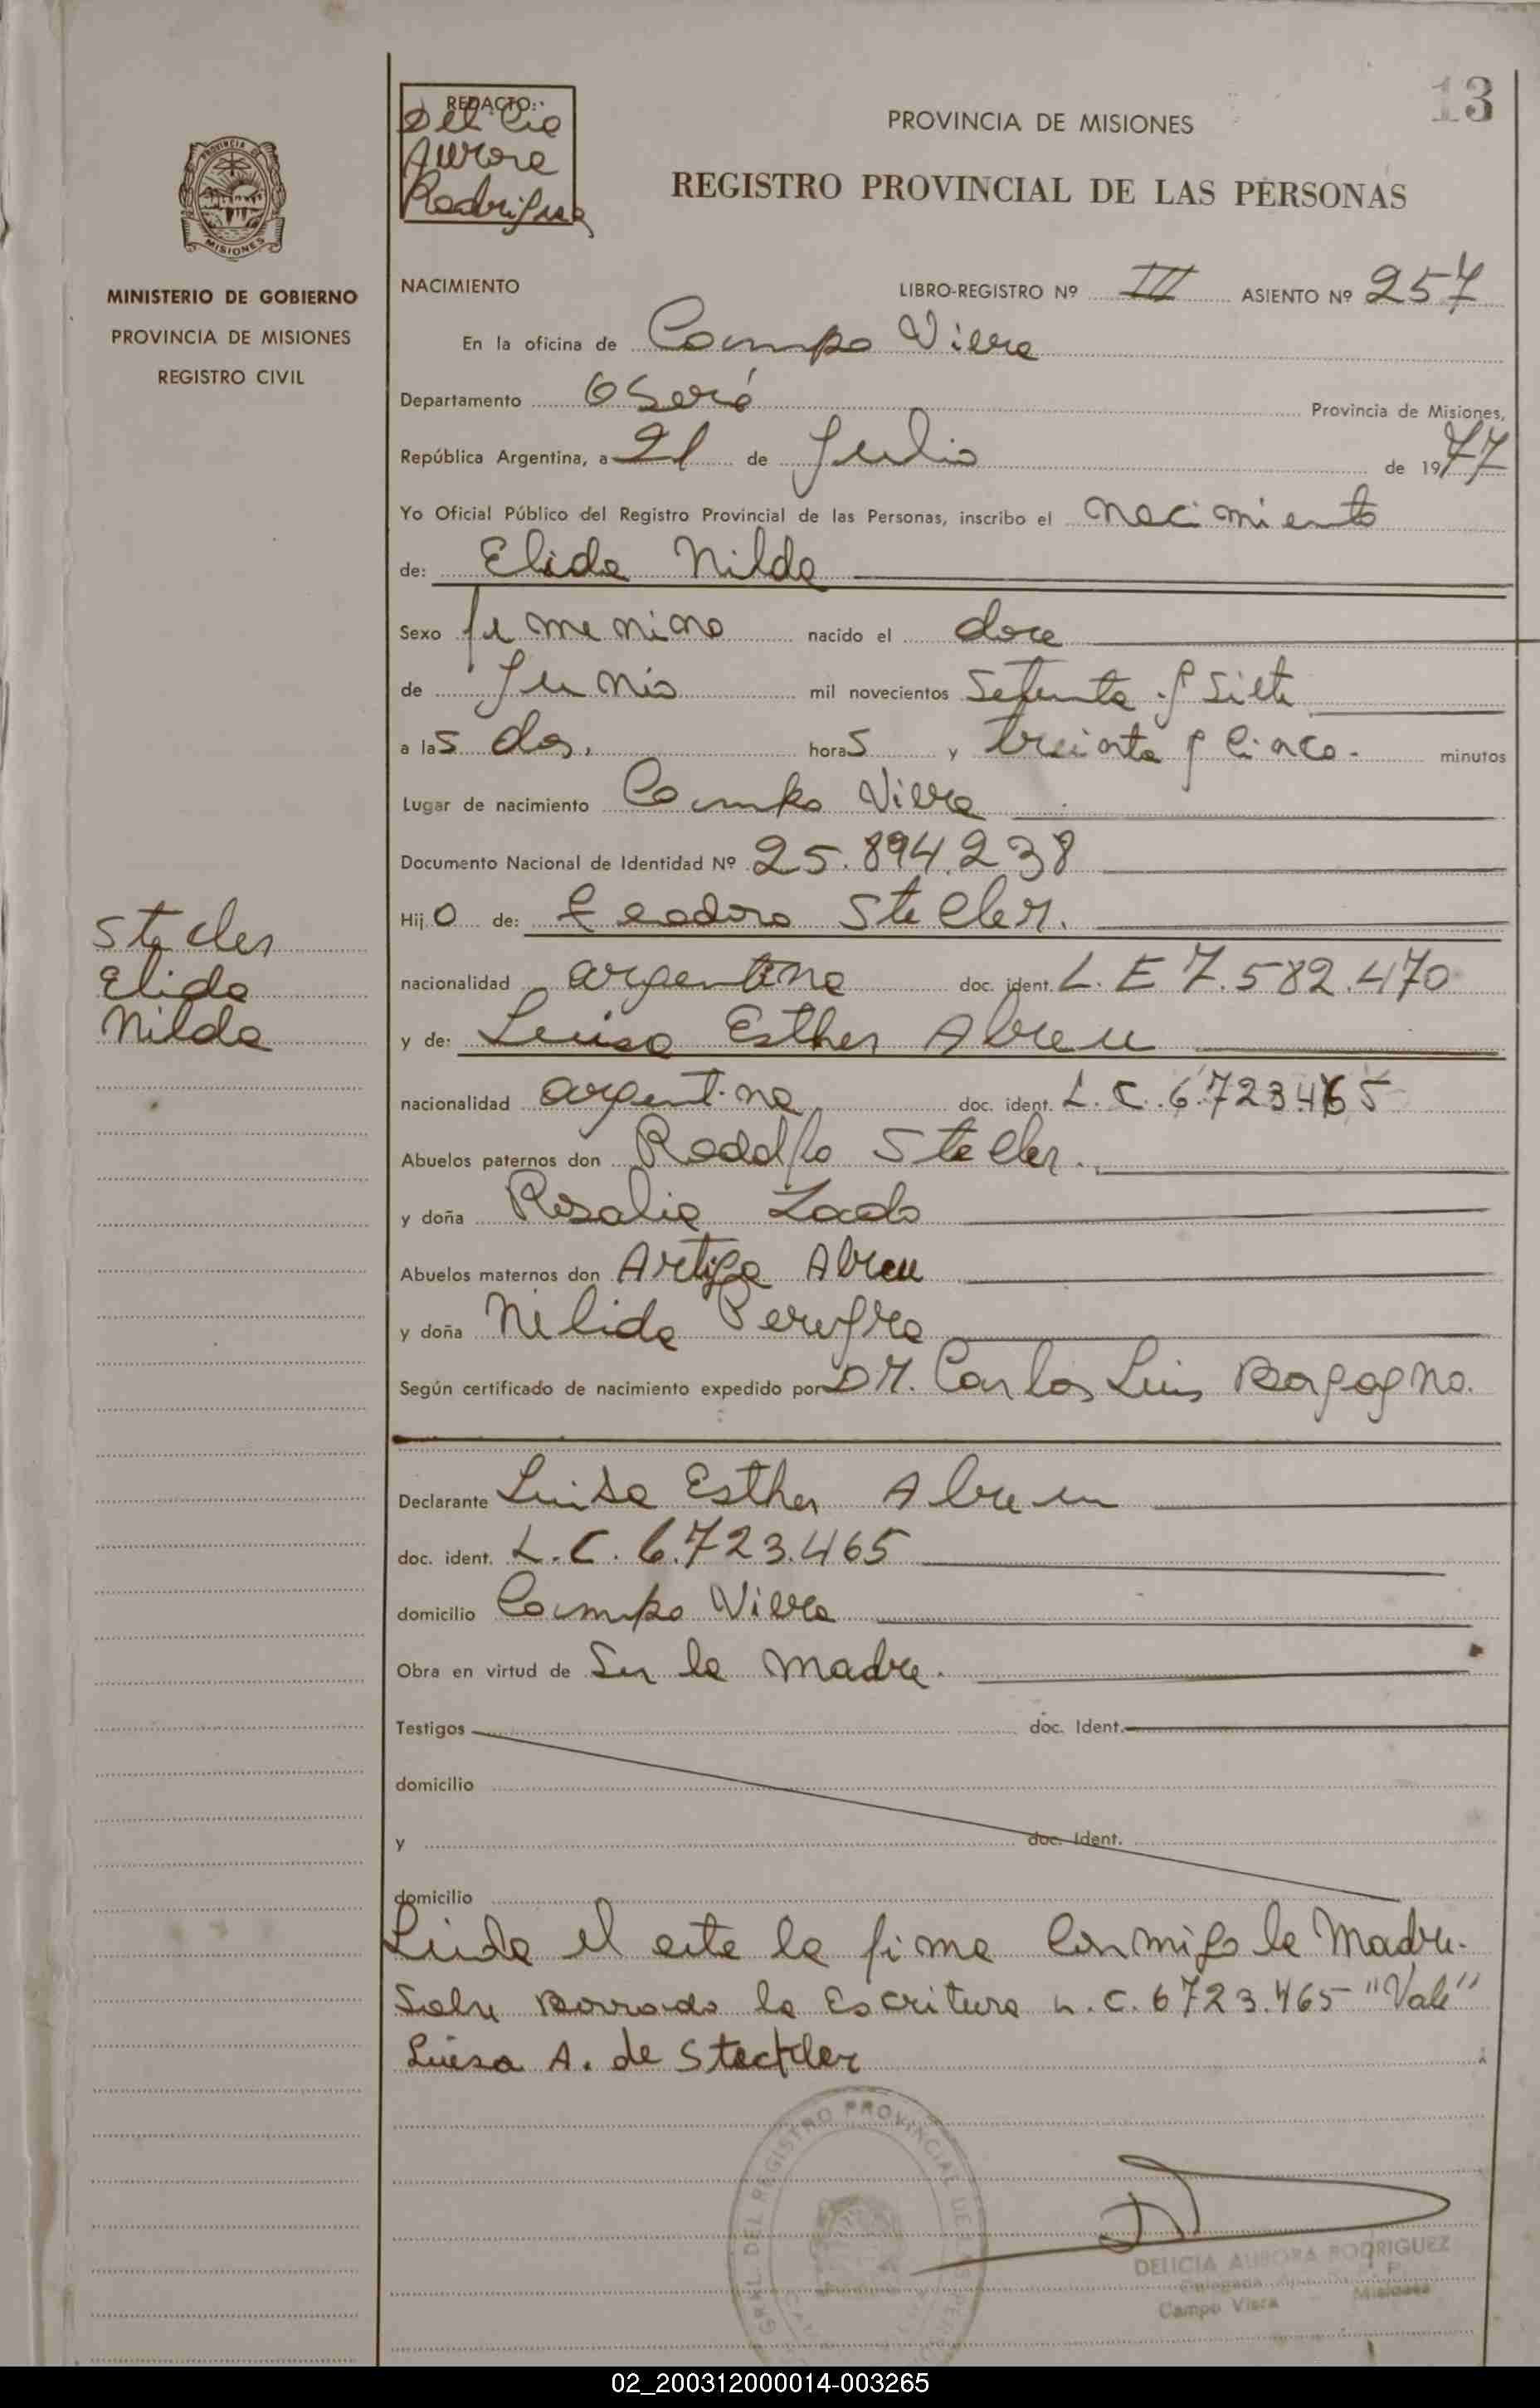 13
REDACTO:
Delicia
Aurora
Rodriguez
PROVINCIA DE MISIONES
REGISTRO PROVINCIAL DE LAS PERSONAS
PROVINCIA DE
MISIONES
MINISTERIO DE GOBIERNO
PROVINCIA DE MISIONES
REGISTRO CIVIL
NACIMIENTO LIBRO-REGISTRO Nº III ASIENTO Nº 257
En la oficina de Campo Viera
Departamento Oberá Provincia de Misiones,
República Argentina, a 21 de Julio de 1977
Yo Oficial Público del Registro Provincial de las Personas, inscribo el nacimiento
de: Elida Nilda
Sexo femenino nacido el doce
de Junio mil novecientos setenta y siete
a las dos, horas y treinta y cinco- minutos
Lugar de nacimiento Campo Viera
Documento Nacional de Identidad Nº 25.894.238
Hijo de: Teodoro Stecler.
Stecler
Elida
Nilda
nacionalidad argentina doc. ident. L.E 7.582.470
y de: Luisa Esther Abreu
nacionalidad argentina doc. ident. L.C. 6.723.465
Abuelos paternos don Rodolfo Stecler.
y doña Rosalia
Abuelos maternos don Artiga Abreu
y doña Nelida Pereyra
Según certificado de nacimiento expedido por DR. Carlos Luis
Declarante Luisa Esther Abreu
doc. ident. L.C. 6.723.465
domicilio Campo Viera
Obra en virtud de Ser la madre.
Testigos doc. Ident.
domicilio
y doc. Ident.
domicilio
Leida el acta la firma conmigo la Madre.
Sobre Borrado la Escritura L.C. 6723.465 "Vale"
Luisa A. de Steckler
GRAL. DEL REGISTRO PROVINCIAL DE LAS PERSONAS
DELICIA AURORA RODRIGUEZ
Campo Viera Misiones
02_200312000014-003265